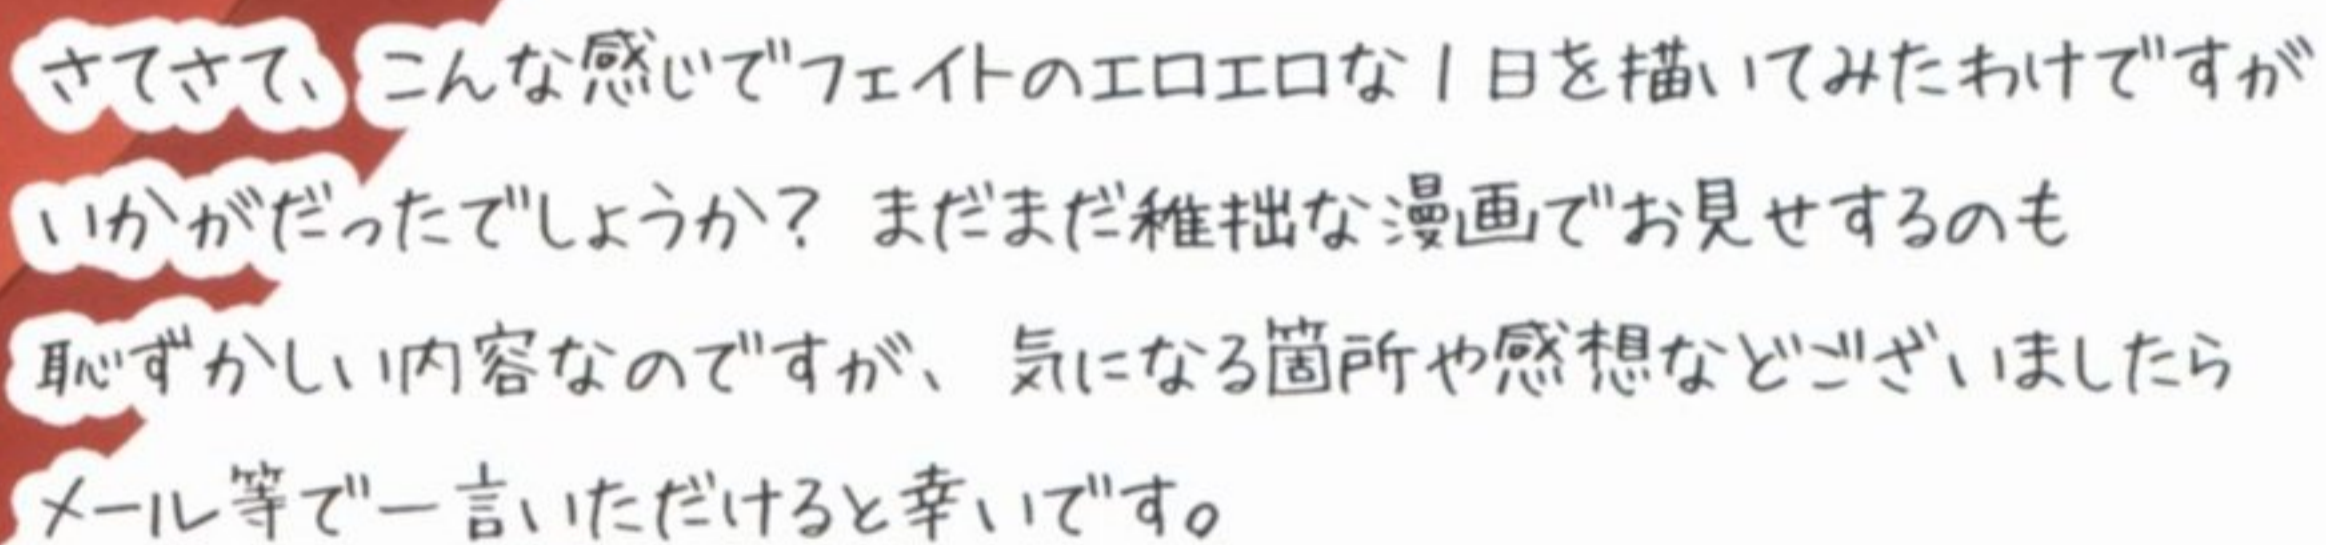 さてさて、こんな感じでフェイトのエロエロな1日を描いてみたわけですが
いかがだったでしょうか？ まだまだ稚拙な漫画でお見せするのも
恥ずかしい内容なのですが、気になる箇所や感想などございましたら
メール等で一言いただけると幸いです。